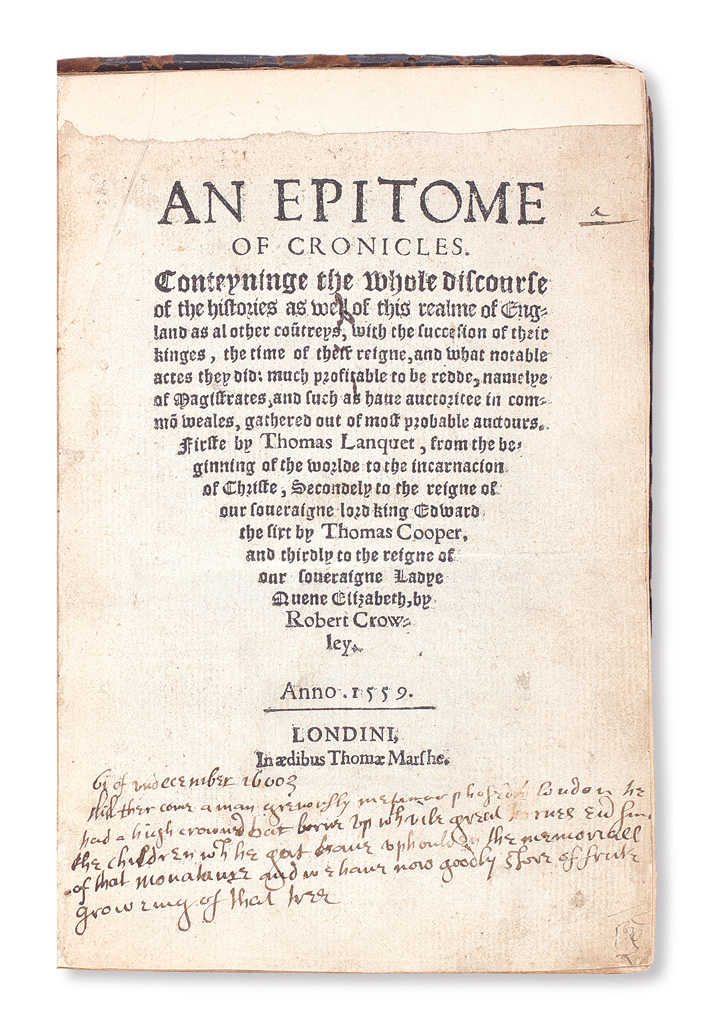 AN EPITOME
OF CRONICLES.
Conteyninge the whole discourse
of the histories as well of this realme of Eng-
land as al other coūtreys, with the succesion of their
kinges, the time of their reigne, and what notable
actes they did: much profitable to be redde, namelye
of Magistrates, and such as haue auctoritee in com-
mō weales, gathered out of most probable auctours.
Firste by Thomas Lanquet, from the be-
ginning of the worlde to the incarnacion
of Christe, Secondely to the reigne of
our soueraigne lord king Edward
the sixt by Thomas Cooper,
and thirdly to the reigne of
our soueraigne Ladye
Quene Elizabeth, by
Robert Crow-
ley.
Anno. 1559.
LONDINI,
In ædibus Thomæ Marshe.
a
of december
ther come a man grevously london he
had a high crowned hat great hornes
the children he gat have the memoriall
of that and we have now goodly store of frute
growing of that tree